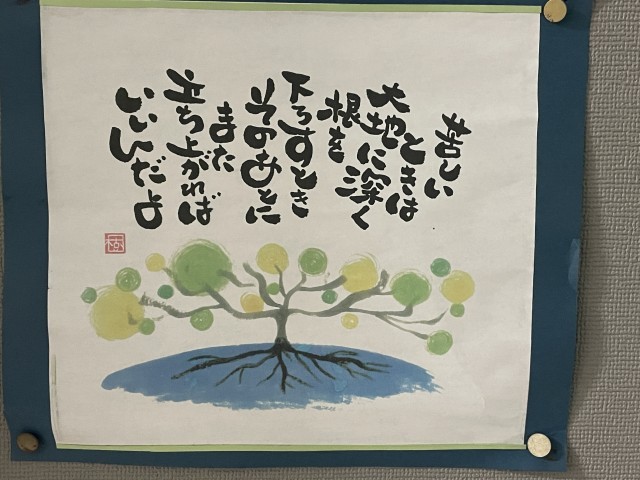 苦しい
ときは
大地に深く
根を
下ろすとき
そのあとに
また
立ち上がれば
いいんだよ